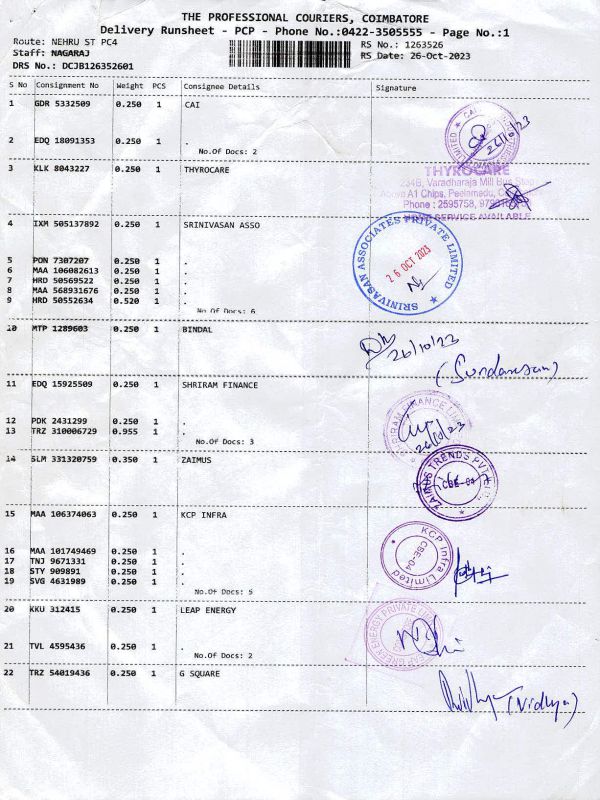 THE PROFESSIONAL COURIERS, COIMBATORE
Delivery Runsheet - PCP - Phone No.:0422-3505555 - Page No.:1
Route: NEHRU ST PC4 RS No.: 1263526
Staff: NAGARAJ RS Date: 26-Oct-2023
DRS No.: DCJB126352601
S No Consignment No Weight PCS Consignee Details Signature
1 GDR 5332509 0.250 1 CAI
26/10/23
2 EDQ 18091353 0.250 1 .
No.Of Docs: 2
3 KLK 8043227 0.250 1 THYROCARE
THYROCARE
234B, Varadharaja Mill Bus Stop
Above A1 Chips, Peelamedu,
Phone : 2595758,
HOME SERVICE AVAILABLE
4 IXM 505137892 0.250 1 SRINIVASAN ASSO
SRINIVASAN ASSOCIATES PRIVATE LIMITED
26 OCT 2023
5 PON 7307207 0.250 1 .
6 MAA 106082613 0.250 1 .
7 HRD 50569522 0.250 1 .
8 MAA 568931676 0.250 1 .
9 HRD 50552634 0.520 1 .
No Of Docs: 6
10 MTP 1289603 0.250 1 BINDAL
26/10/23
(Sundaresan)
11 EDQ 15925509 0.250 1 SHRIRAM FINANCE
12 PDK 2431299 0.250 1 .
13 TRZ 310006729 0.955 1 .
No.Of Docs: 3
14 SLM 331320759 0.350 1 ZAIMUS
CBE-04
15 MAA 106374063 0.250 1 KCP INFRA
KCP Infra Limited
CBE-04
16 MAA 101749469 0.250 1 .
17 TNJ 9671331 0.250 1 .
18 STY 909891 0.250 1 .
19 SVG 4631989 0.250 1 .
No.Of Docs: 5
20 KKU 312415 0.250 1 LEAP ENERGY
21 TVL 4595436 0.250 1 .
No.Of Docs: 2
22 TRZ 54019436 0.250 1 G SQUARE
(Vidhya)